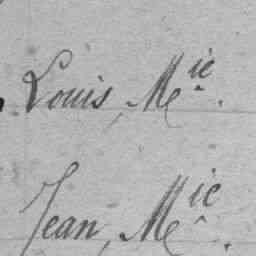 Louis, Mie.
Jean, Mie.